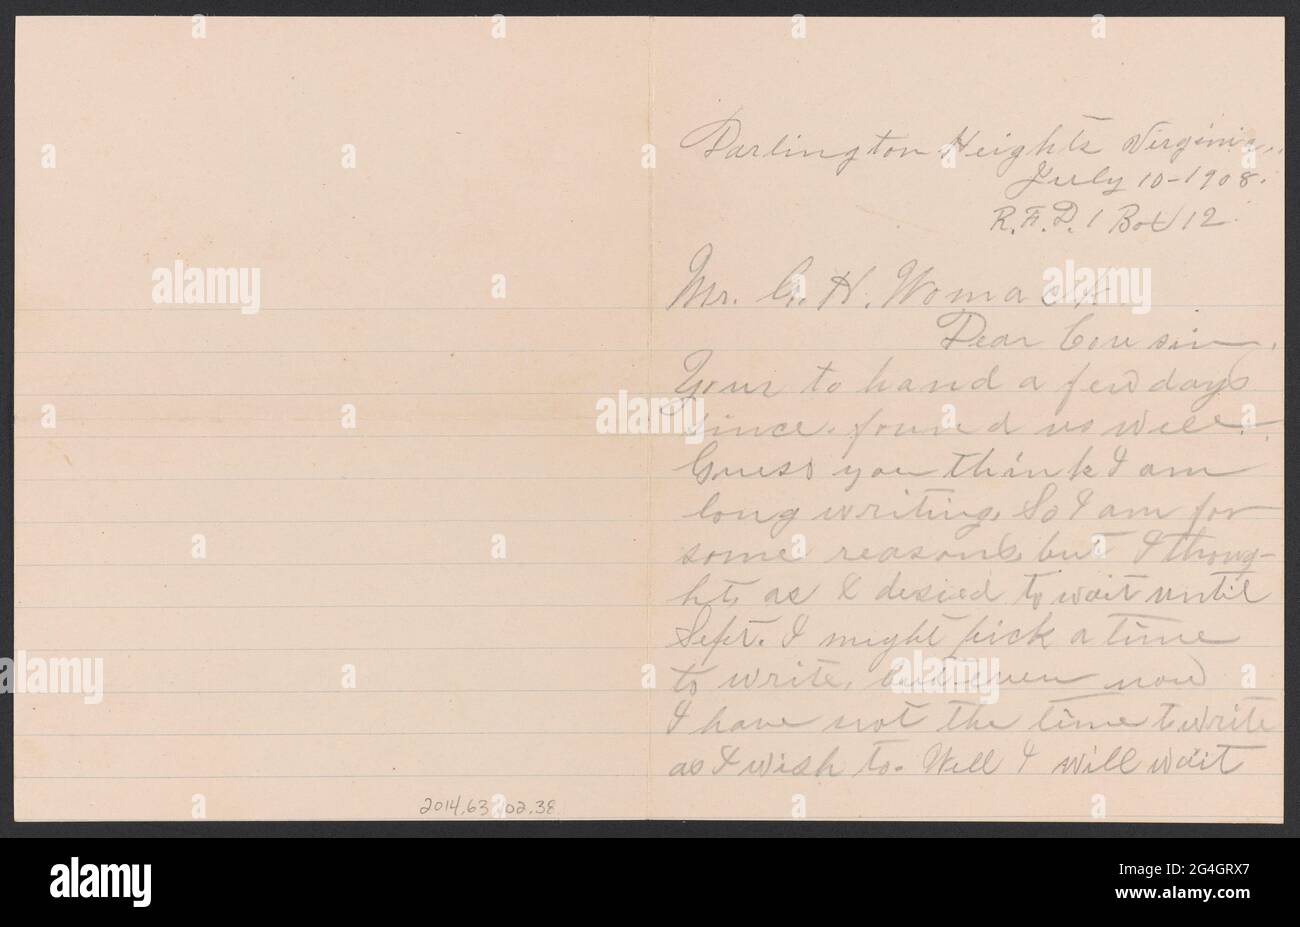 Darlington Heights Virginia.
July 10-1908.
R.F.D. 1 Box 12
Mr. G. H. Womack
Dear Cousin,
Your to hand a few days
since. found us well.
Guess you think I am
long writing. So I am for
some reasons, but I thoug-
ht, as I desied to wait until
Sept. I might pick a time
to write, but even now
I have not the time to write
as I wish to. Well I will wait
2014.63.02.38
alamy
Image ID: 2G4GRX7
www.alamy.com